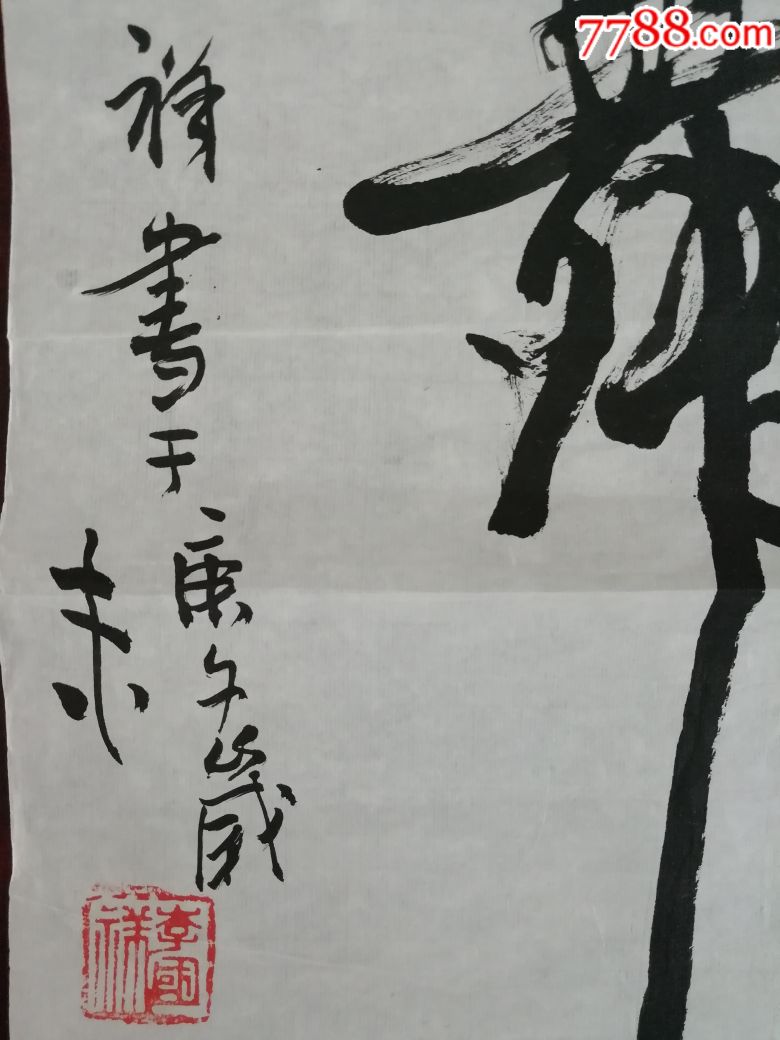 7788.com
舞
祥書于庚午歲
末
李国祥